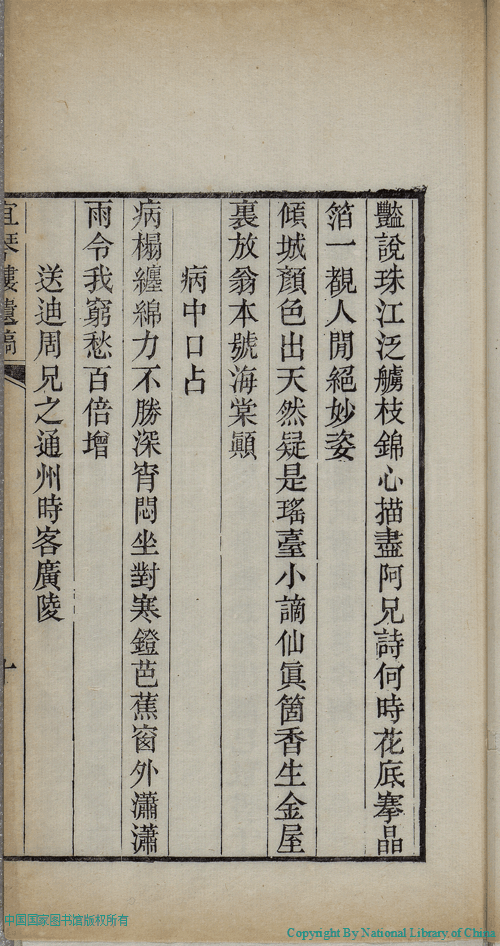 豔說珠江泛艣枝錦心描盡阿兄詩何時花底搴晶
箔一覩人閒絕妙姿
傾城顏色出天然疑是瑤臺小謫仙眞箇香生金屋
裏放翁本號海棠顚
病中口占
病榻纏綿力不勝深宵悶坐對寒鐙芭蕉窗外瀟瀟
雨令我窮愁百倍增
送迪周兄之通州時客廣陵
宜琴樓遺稿
十
中国国家图书馆版权所有
Copyright By National Library of China